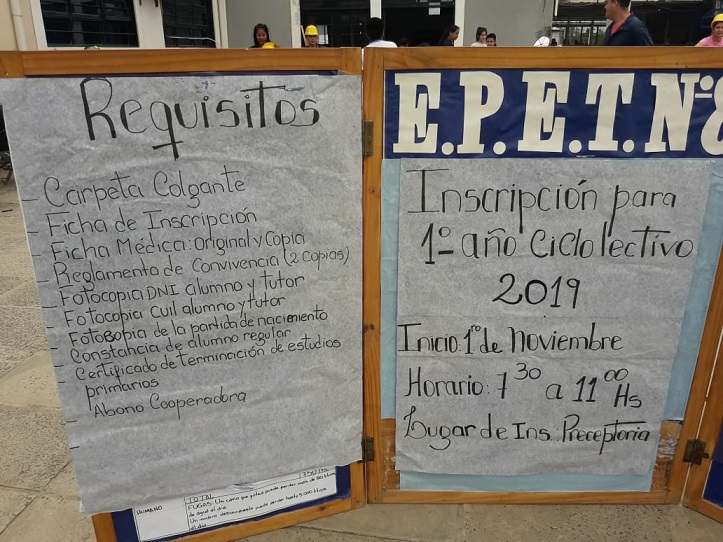 Requisitos
- Carpeta Colgante
- Ficha de Inscripción
- Ficha Médica: Original y Copia
- Reglamento de Convivencia (2 Copias)
- Fotocopia DNI alumno y tutor
- Fotocopia Cuil alumno y tutor
- Fotocopia de la partida de nacimiento
- Constancia de alumno regular
- Certificado de terminación de estudios
primarios
- Abono Cooperadora
TOTAL
HUMANO
FUGAS: Un caño que gotea puede perder mas de 80 litros
de agua al día.
hasta 5.000 litros
al día.
E.P.E.T. Nº 8
Inscripción para
1º año Ciclo lectivo
2019
Inicio: 1º de Noviembre
Horario: 7 30 a 11 00 Hs
Lugar de Ins: Preceptoria